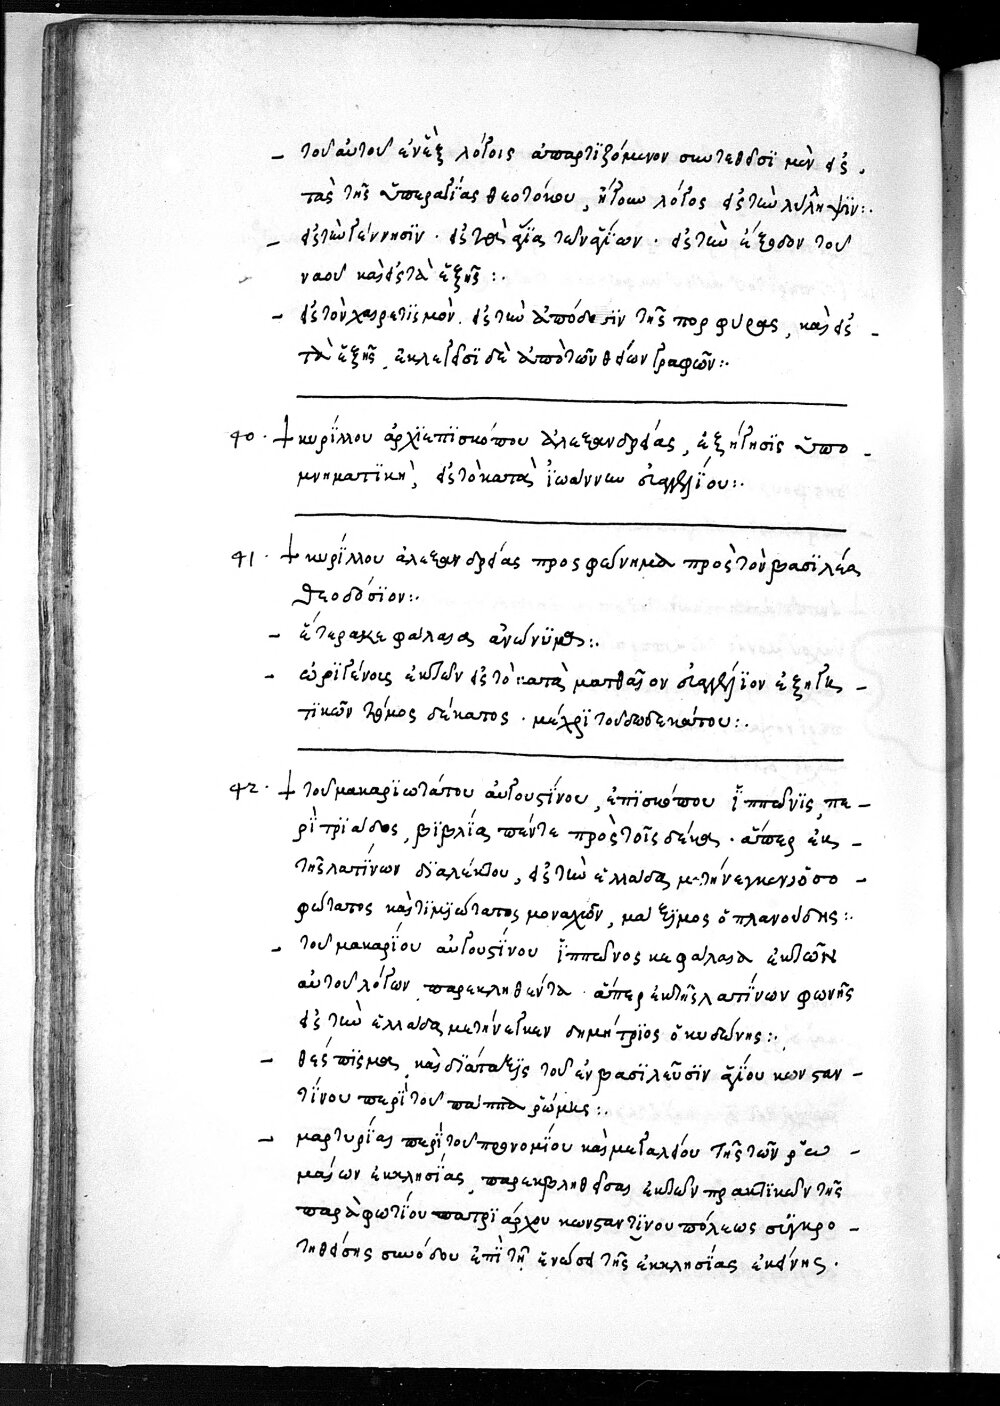 – τοῦ αὐτοῦ ἐν ἓξ λόγοις ἀπαρτιζόμενον συντεθὲν εἰς
τὰς τῆς ὑπεραγίας θεοτόκου, ἤγουν λόγος εἰς τὴν σύλληψιν:·
– εἰς τὴν γέννησιν · εἰς τὰ ἅγια τῶν ἁγίων · εἰς τὴν ἔξοδον τοῦ
ναοῦ καὶ εἰς τὰ ἑξῆς :·
– εἰς τὸν χαιρετισμόν. εἰς τὴν ἀπόδοσιν τῆς πορφύρας, καὶ εἰς –
τὰ ἑξῆς, ἐκλεγεῖσι δὲ ἀπὸ τῶν θείων γραφῶν:·
40 · † κυρίλλου ἀρχιεπισκόπου ἀλεξανδρείας, ἐξήγησις ὑπο –
μνηματικὴ, εἰς τὸ κατὰ ἰωάννην εὐαγγελίου:·
41 · † κυρίλλου ἀλεξανδρείας προσφώνημα πρὸς τὸν βασιλέα
θεοδόσιον:·
– ἕτερα κεφάλαια ἀνωνύμως:·
– ὠριγένους ἐκ τῶν εἰς τὸ κατὰ ματθαῖον εὐαγγέλιον ἐξηγη –
τικῶν τόμος δέκατος · μέχρι τοῦ δωδεκάτου:·
42 · † τοῦ μακαριωτάτου αὐγουστίνου, ἐπισκόπου ἱππῶνις, πε –
ρὶ τριάδος, βιβλία πέντε πρὸς τοῖς δέκα · ἅπερ ἐκ –
τῆς λατίνων διαλέκτου, εἰς τὴν ἑλλάδα μετήνεγκεν ὁ σο –
φώτατος καὶ τιμιώτατος μοναχῶν, μάξιμος ὁ πλανούδης:·
– τοῦ μακαρίου αὐγουστίνου ἱππῶνος κεφάλαια ἐκ τῶν
αὐτοῦ λόγων παρεκληθέντα · ἅπερ ἐκ τῆς λατίνων φωνῆς
εἰς τὴν ἑλλάδα μετήνεγκεν δημήτριος ὁ κυδώνης:·
– θέσπισμα, καὶ διάταξις τοῦ ἐν βασιλεῦσιν ἁγίου κωνσταν –
τίνου περὶ τοῦ πάππα ῥώμης:·
– μαρτυρίαι περὶ τοῦ προνομίου καὶ μεγαλείου τῆς τῶν ῥω –
μαίων ἐκκλησίας, παρεκβληθεῖσαι ἐκ τῶν πρακτικῶν τῆς
παρὰ φωτίου πατριάρχου κωνσταντινουπόλεως συγκρο –
τηθείσης συνόδου ἐπὶ τῇ ἑνώσει τῆς ἐκκλησίας ἐκείνης ·